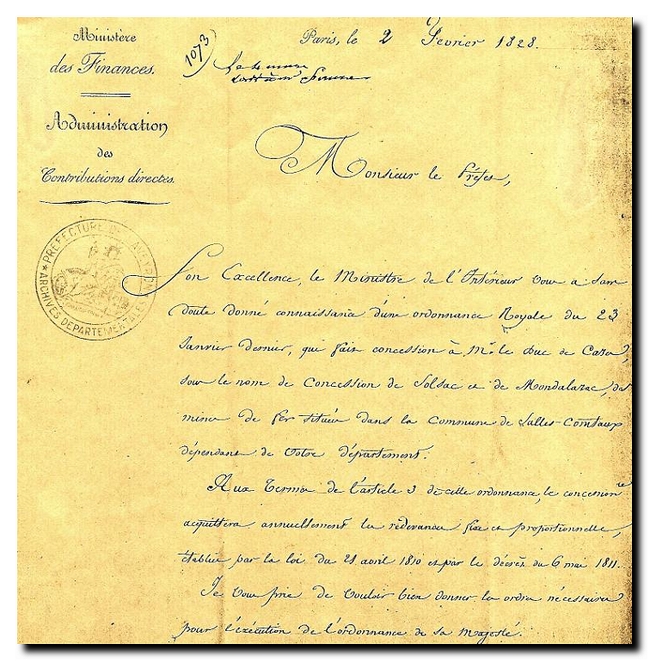 Ministère
des Finances.
Administration
des
Contributions directes.
1073
Paris, le 2 Février 1828.
Monsieur le Préfet,
PRÉFECTURE DE L'AVEYRON
ARCHIVES DÉPARTEMENTALES
Son Excellence, le Ministre de l'Intérieur vous a sans
doute donné connaissance d'une ordonnance Royale du 23
Janvier dernier, qui fait concession à Mr. le Duc de Cazes,
sous le nom de Concession de Solsac et de Mondalazac, des
mines de fer situées dans la Commune de Salles-Comtaux
dépendant de Votre département.
Aux Termes de l'article 3 de cette ordonnance, le concessionre
acquittera annuellement la redevance fixe et proportionnelle,
établie par la loi du 21 avril 1810 et par le décret du 6 mai 1811.
Je vous prie de vouloir bien donner les ordres nécessaires
pour l'exécution de l'ordonnance de sa Majesté.